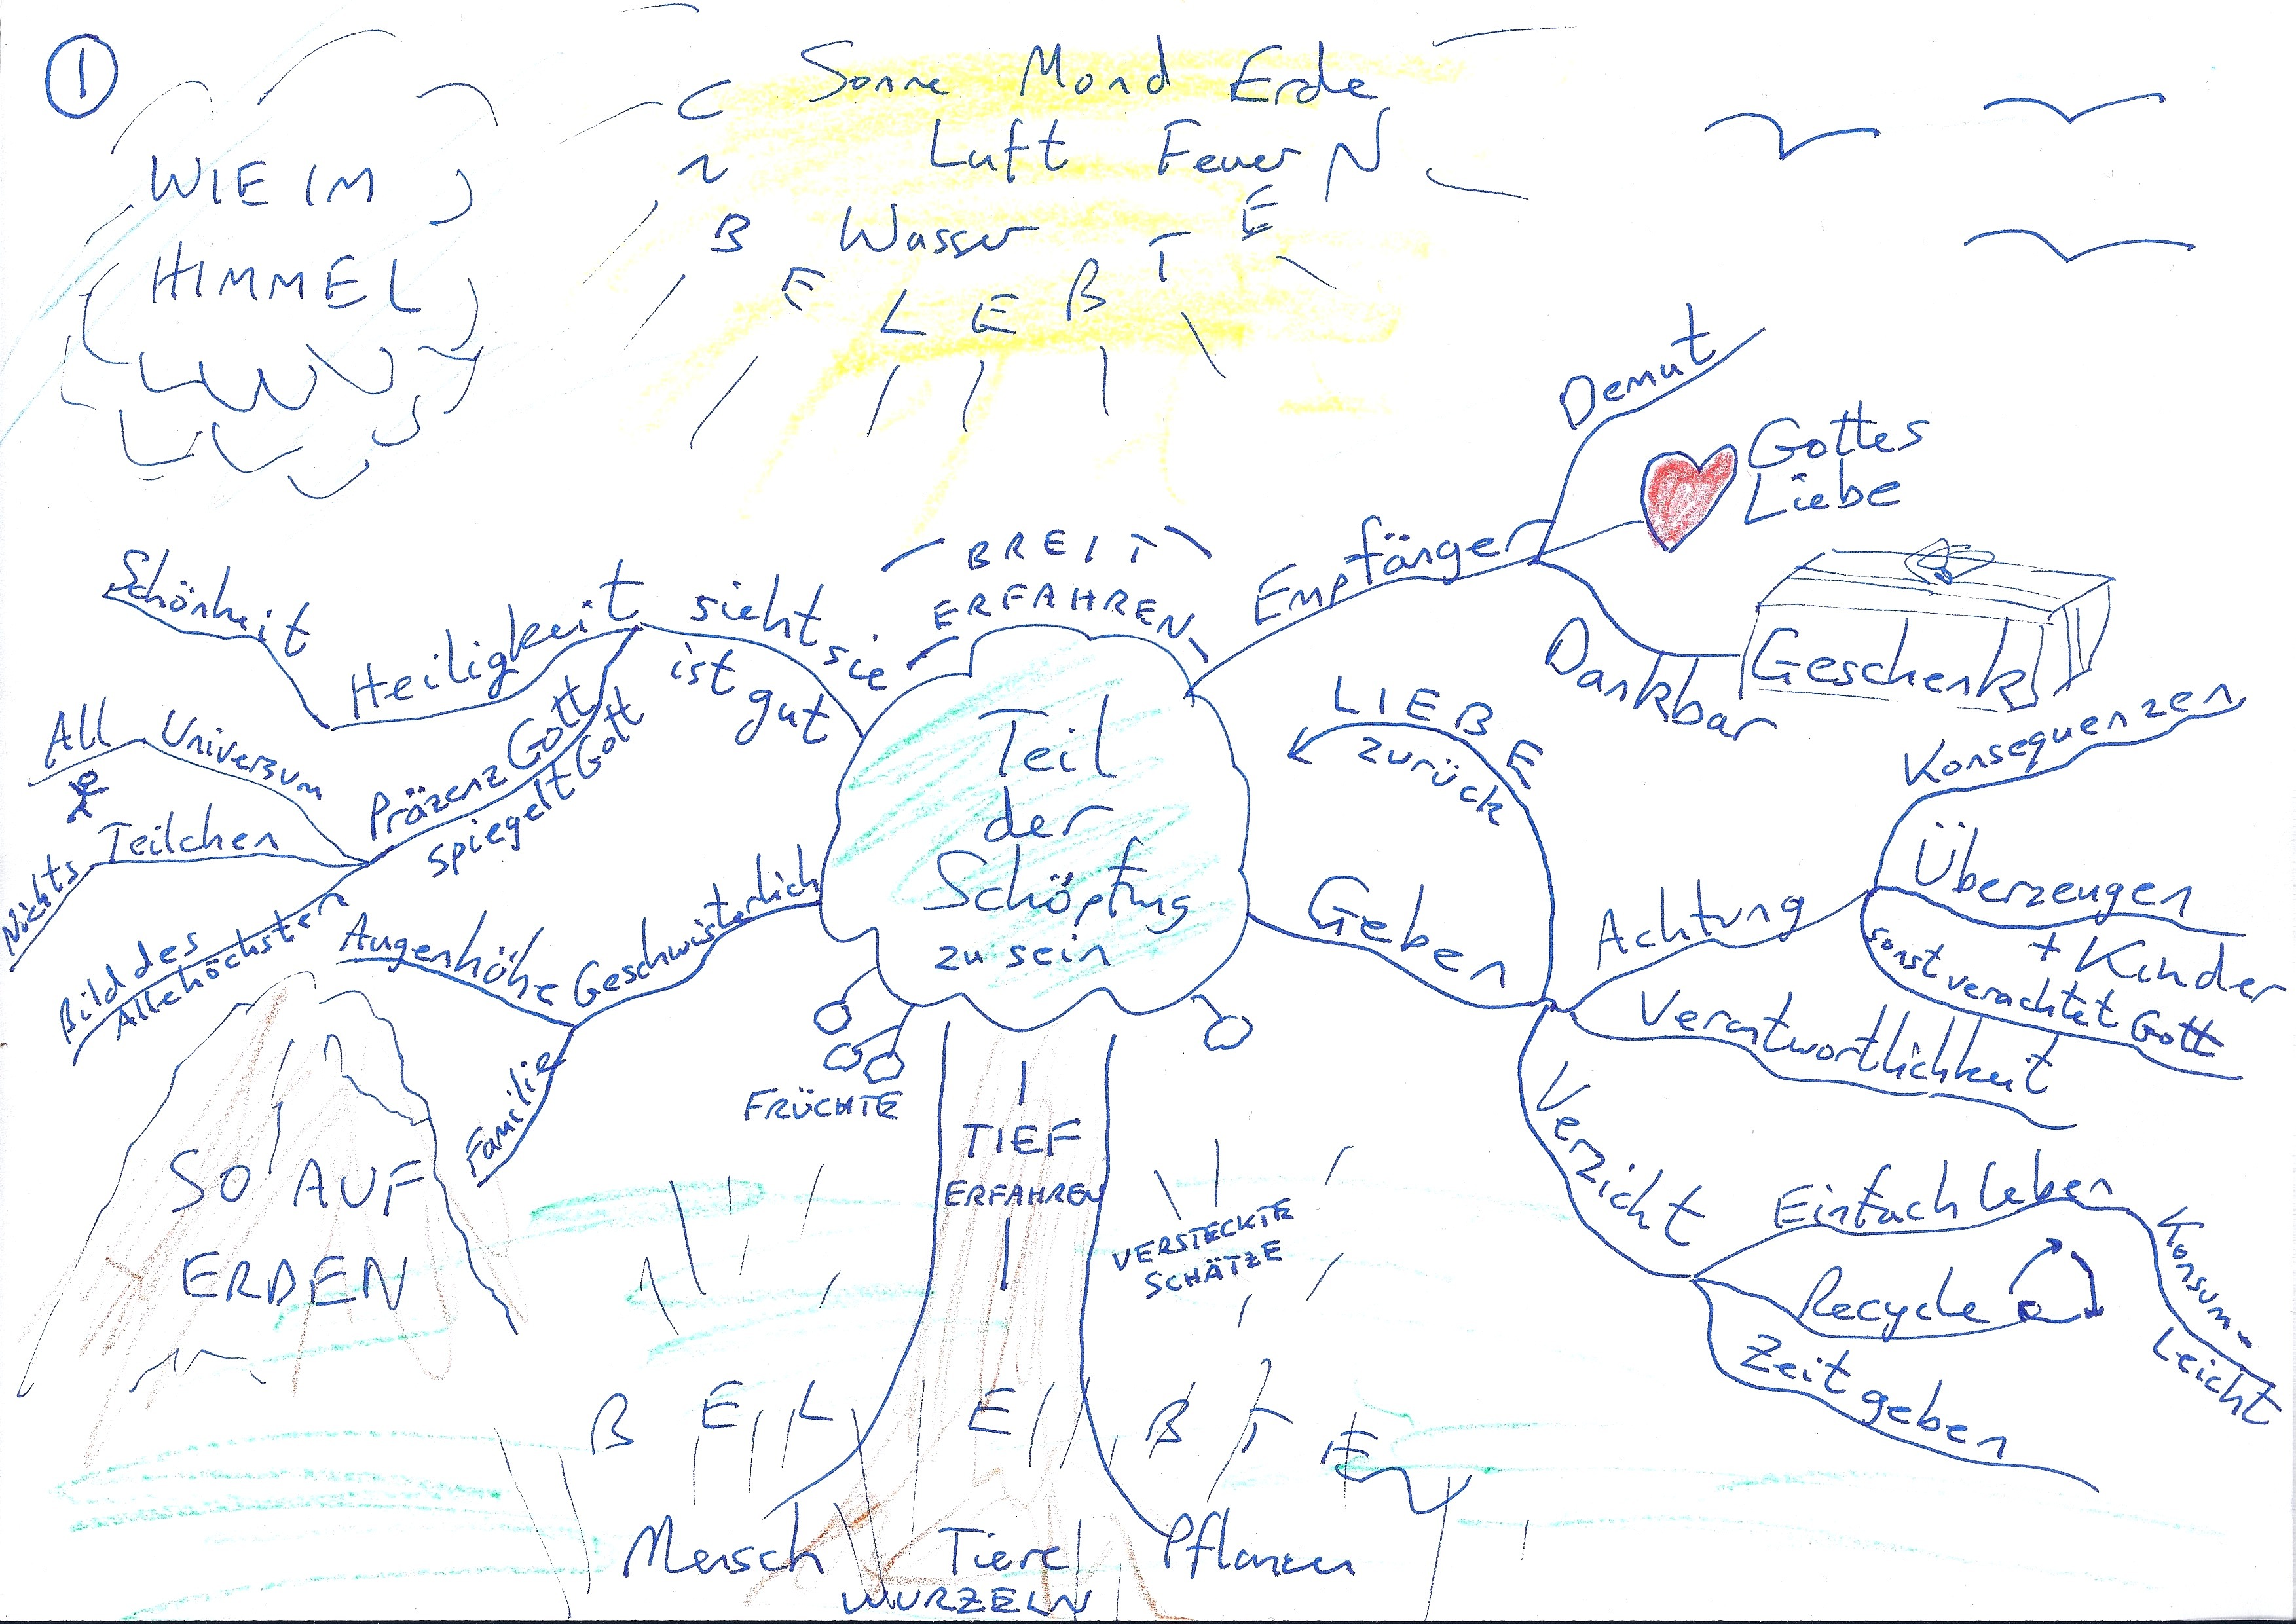 1
Sonne Mond Erde
Luft Feuer
Wasser
UNBELEBTEN
WIE IM
HIMMEL
Demut
Gottes
Liebe
Empfänger
Geschenk
Dankbar
BREIT
ERFAHREN
sieht sie
ist gut
Heiligkeit
Schönheit
Präzenz Gott
spiegelt Gott
Universum
All
Teilchen
Nichts
Bild des
Allehöchsten
Geschwisterlich
Augenhöhe
Familie
Teil
der
Schöpfung
zu sein
LIEBE
zurück
Geben
Achtung
Konsequenzen
Überzeugen
+ Kinder
sonst verachtet Gott
Verantwortlichkeit
Verzicht
Einfach leben
Konsum-
Leicht
Recycle
Zeit geben
FRÜCHTE
TIEF
ERFAHREN
VERSTECKTE
SCHÄTZE
SO AUF
ERDEN
BELEBTEN
Mensch Tiere Pflanzen
WURZELN